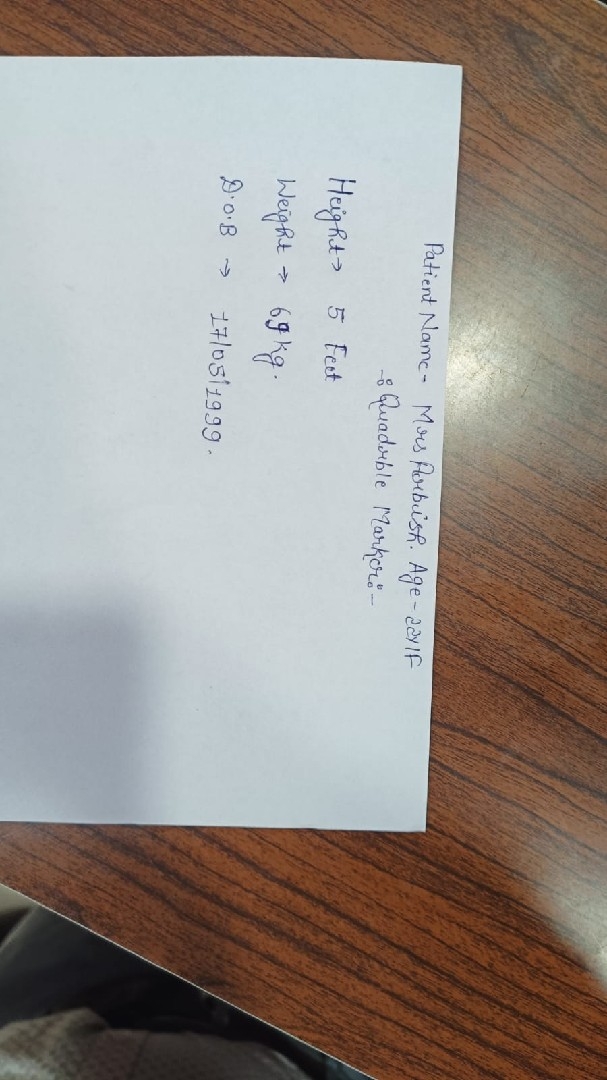 Patient Name - Mrs Parbish. Age - 22y/F
-: Quadrible Marker:-
Height → 5 Feet
Weight → 69 kg.
D.O.B → 17/05/1999.